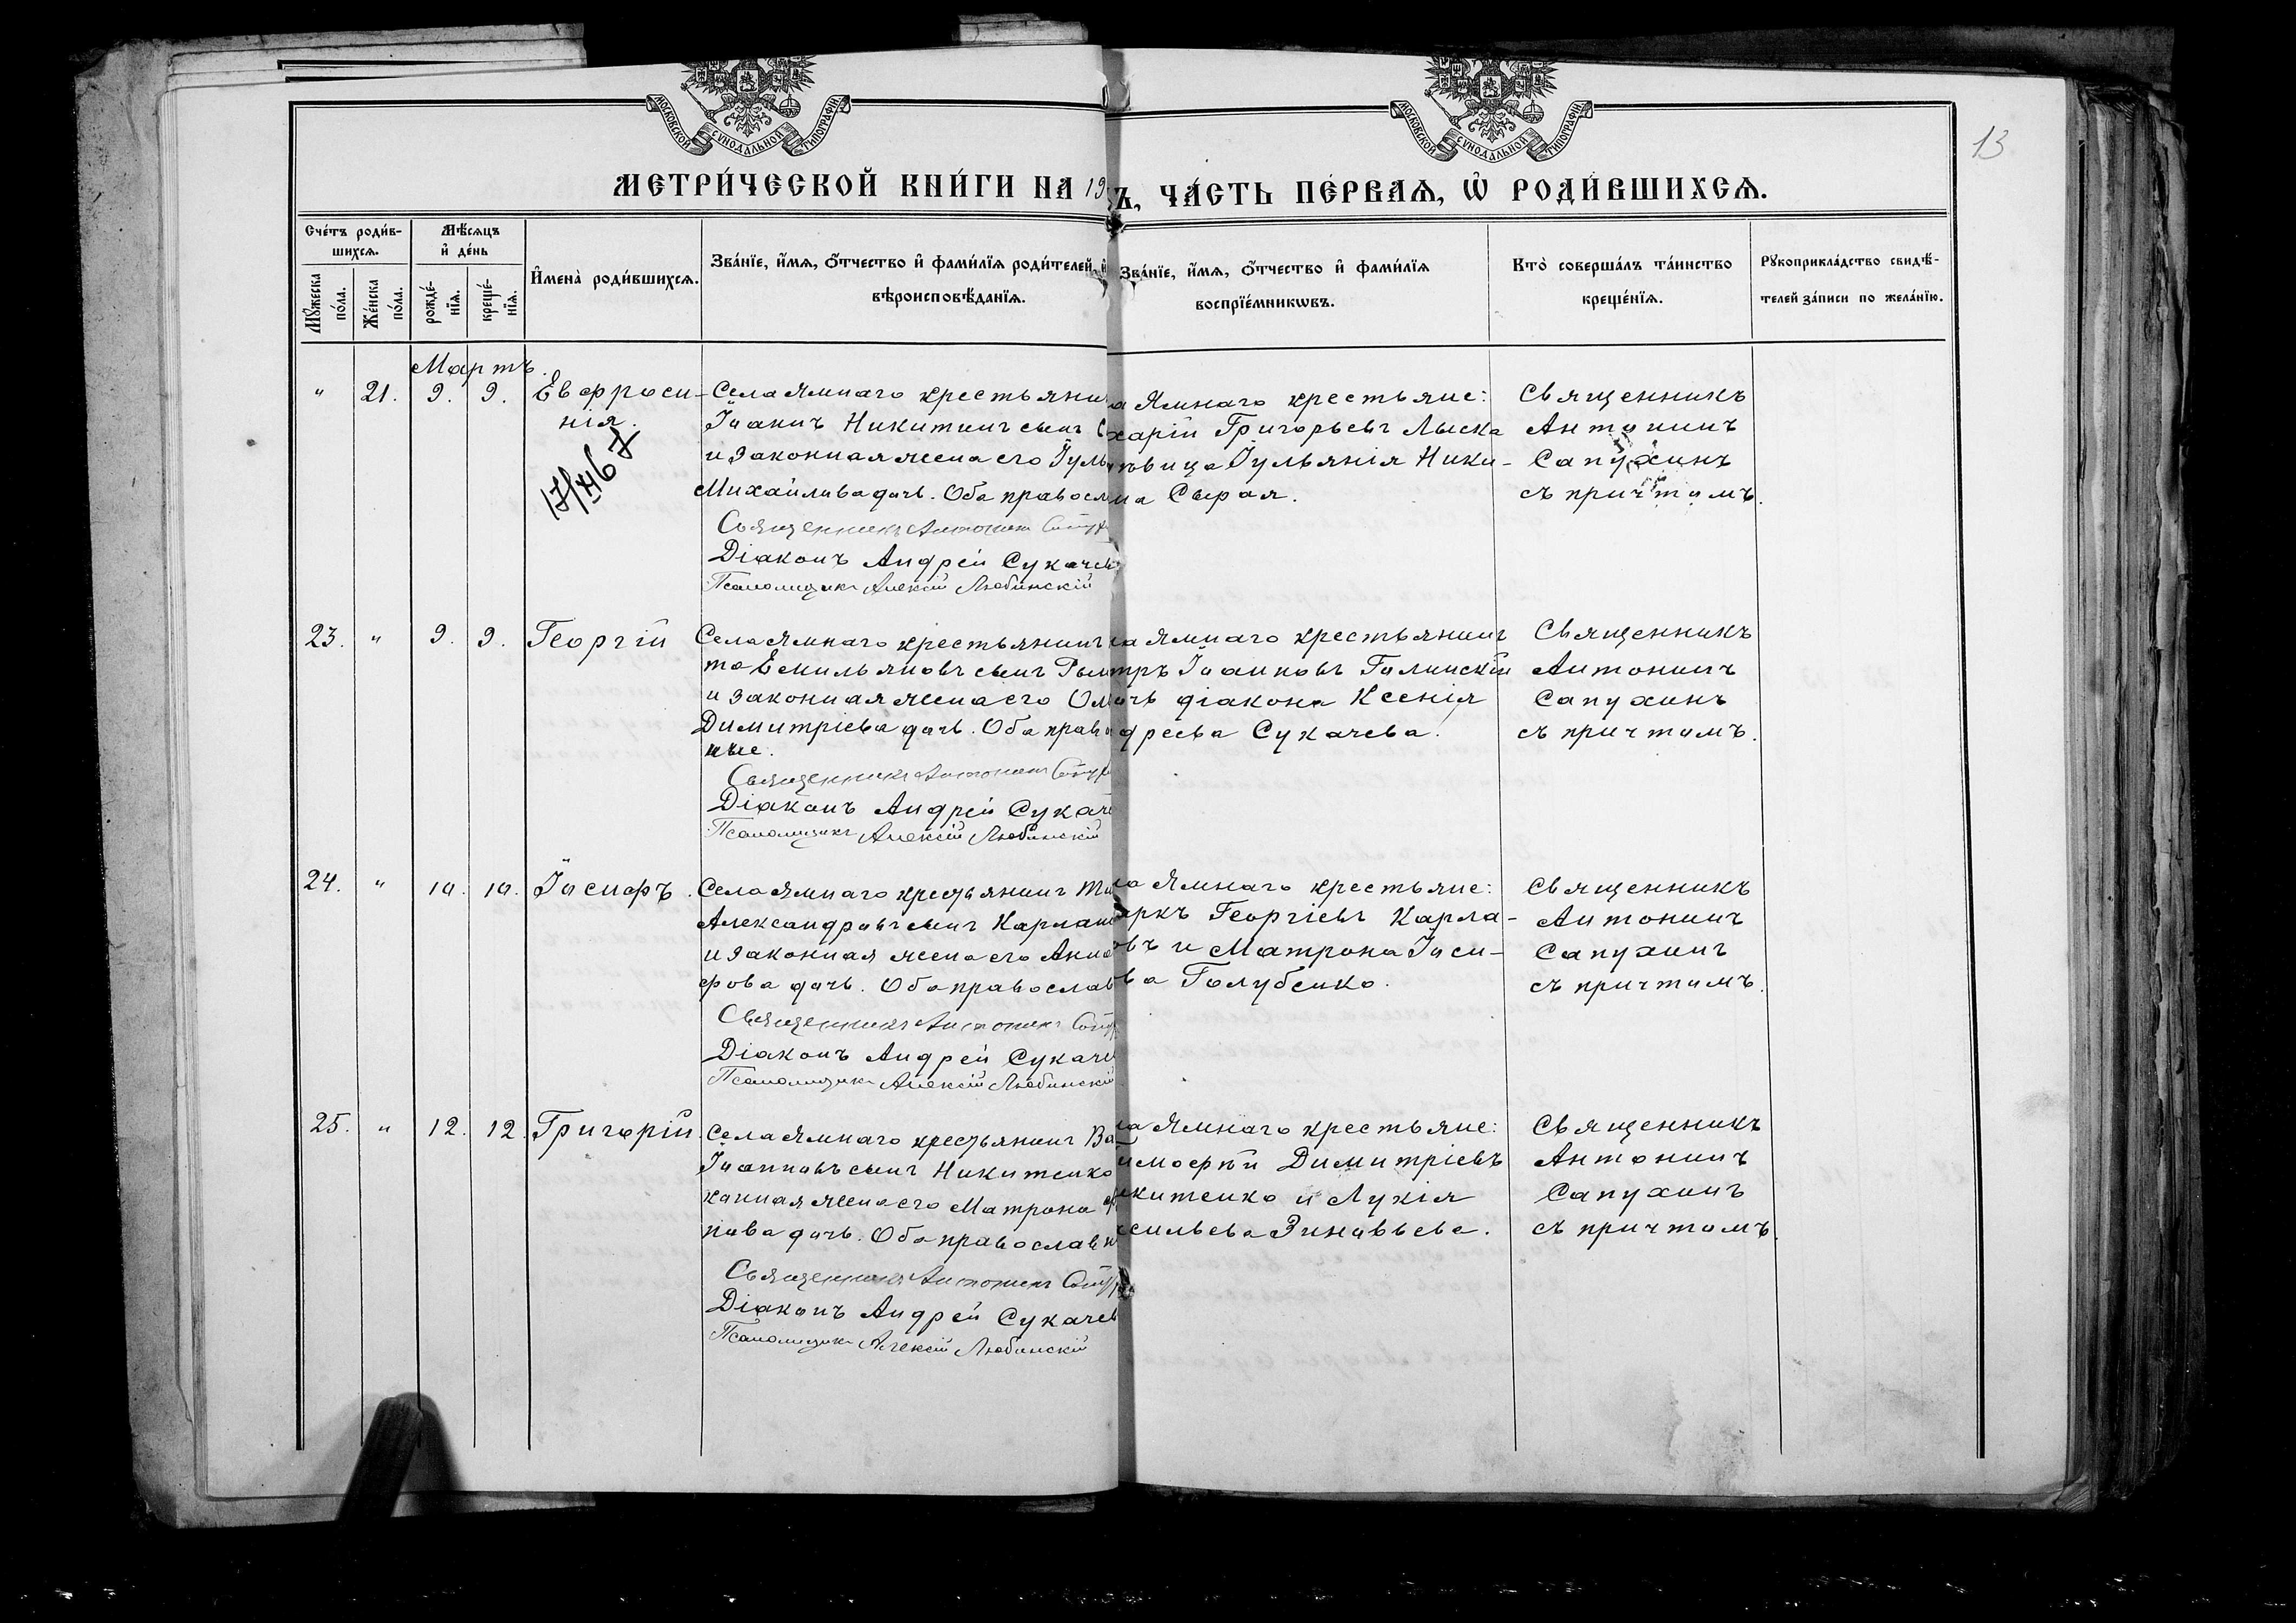 МОСКОВСКОЙ СѴНОДАЛЬНОЙ ТИПОГРАФІИ
МОСКОВСКОЙ СѴНОДАЛЬНОЙ ТИПОГРАФІИ
13
МЕТРИ́ЧЕСКОЙ КНИ́ГИ НА 19
Ъ, ЧА́СТЬ ПЕ́РВАѦ, Ѡ҆ РОДИ́ВШИХСѦ.
Сче́тъ роди́в-
шихсѧ.
Мꙋ́жеска
по́ла.
Же́нска
по́ла.
Мѣ́сѧцъ
и҆ де́нь
рожде́-
нїѧ.
креще́-
нїѧ.
И҆мена̀ роди́вшихсѧ.
Зва́нїе, и҆́мѧ, ѻ҆́тчество и҆ фами́лїѧ роди́телей, и҆
вѣроисповѣ́данїѧ.
Зва́нїе, и҆́мѧ, ѻ҆́тчество и҆ фами́лїѧ
воспрїе́мникѡвъ.
Кто̀ соверша́лъ та́инство
креще́нїѧ.
Рꙋкоприкла́дство свидѣ́-
телей за́писи по жела́нїю.
Мартъ.
" 21. 9. 9. Евфроси-
нія.
17/46
Села Ямнаго крестьянин
Іоаннъ Никитинъ сынъ С
и законная жена его Іуль
Михайлова дочь. Оба правосл
Священникъ Антонинъ Сапух
Діаконъ Андрей Сукачев
Псаломщикъ Алексій Любинскій
а Ямнаго крестьяне:
харій Григорьевъ Лыска
ѣвица Іульянія Ники-
на Сырая.
Священникъ
Антонинъ
Сапухинъ
съ причтомъ.
23. " 9. 9. Георгій
Села Ямнаго крестьянинъ
то Емильяновъ сынъ Рым
и законная жена его Ом
Димитріева дочь. Оба право
ные.
Священникъ Антонинъ Сапух
Діаконъ Андрей Сукаче
Псаломщикъ Алексій Любинскій
ла Ямнаго крестьянинъ
тръ Іоанновъ Галинскій
очь діакона Ксенія
дреева Сукачева.
Священникъ
Антонинъ
Сапухинъ
съ причтомъ.
24. " 10. 10. Іосифъ.
Села Ямнаго крестьянинъ Ти
Александровъ сынъ Карлаш
и законная жена его Анна
фова дочь. Оба православ
Священникъ Антонинъ Сапух
Діаконъ Андрей Сукаче
Псаломщикъ Алексій Любинскій
ла Ямнаго крестьяне:
аркъ Георгіевъ Карла-
овъ и Матрона Іоси-
ва Голубенко.
Священникъ
Антонинъ
Сапухинъ
съ причтомъ.
25. " 12. 12. Григорій.
Села Ямнаго крестьянинъ Ва
Іоанновъ сынъ Никитенко
конная жена его Матрона
пова дочь. Оба православн
Священникъ Антонинъ Сапух
Діаконъ Андрей Сукачев
Псаломщикъ Алексій Любинскій
ла Ямнаго крестьяне:
имофѣй Димитріевъ
икитенко и Лукія
асильева Зиновьева.
Священникъ
Антонинъ
Сапухинъ
съ причтомъ.